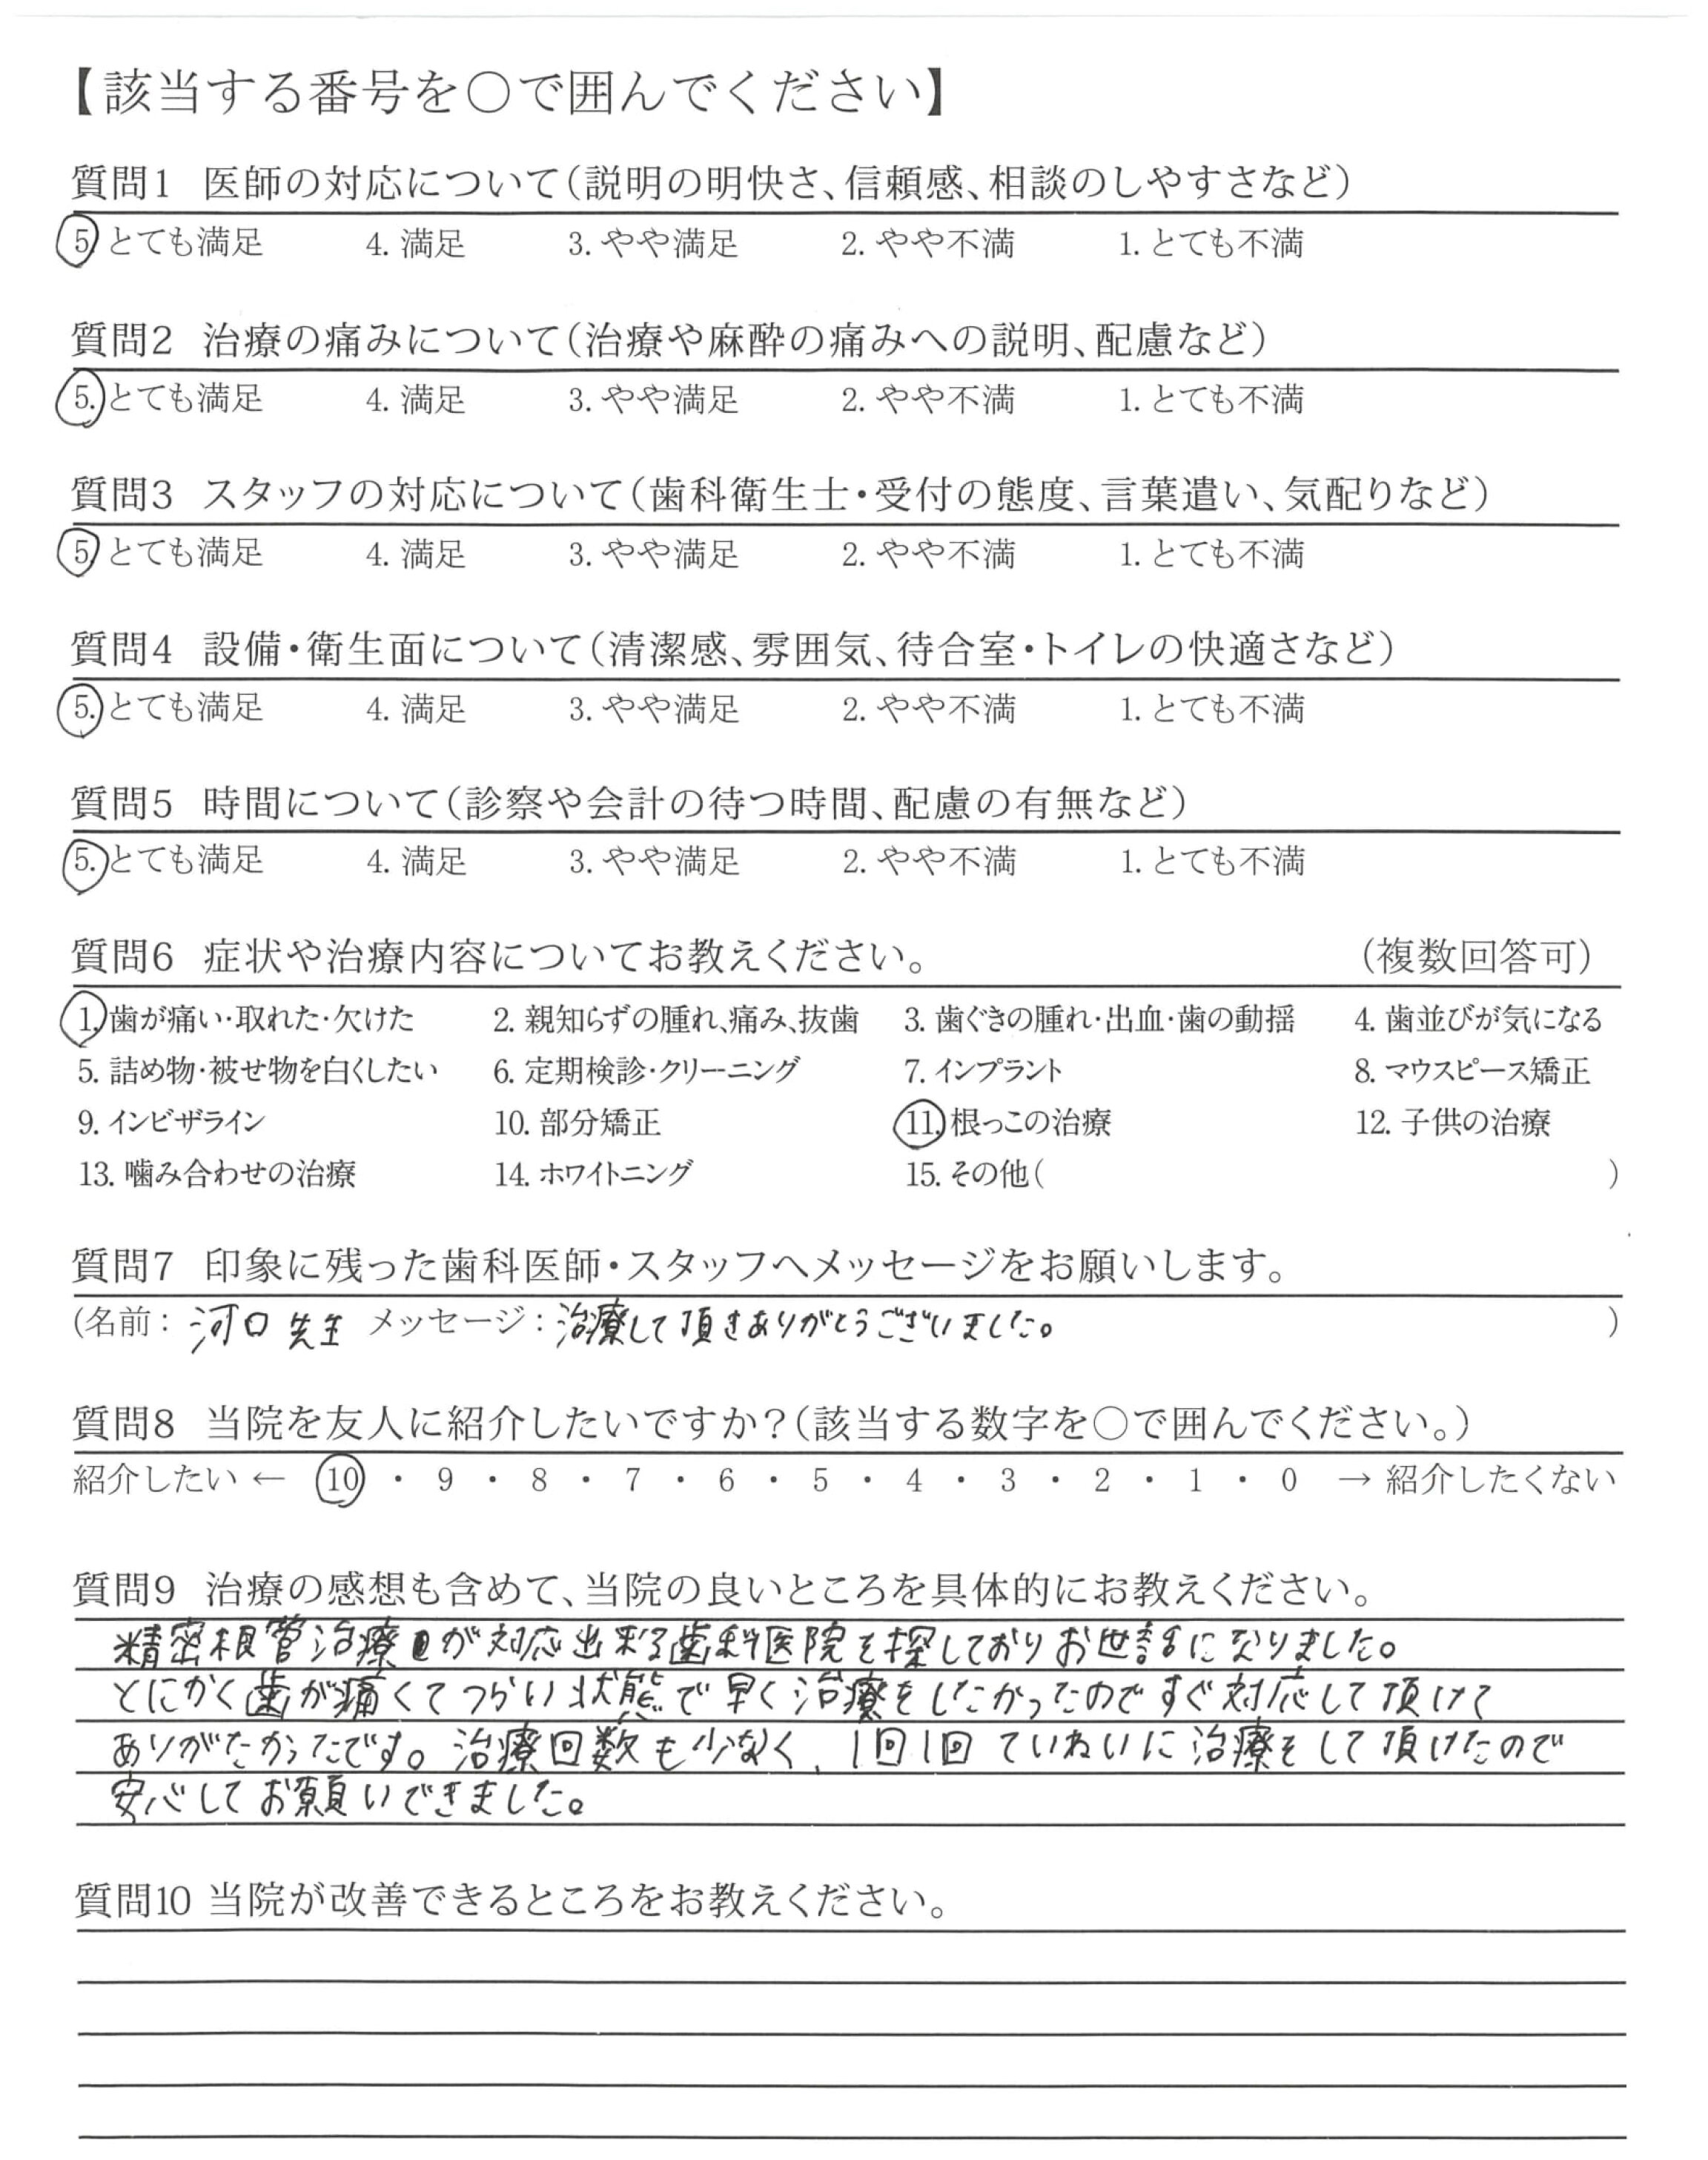 【該当する番号を○で囲んでください】
質問1 医師の対応について(説明の明快さ、信頼感、相談のしやすさなど)
5. とても満足 4. 満足 3. やや満足 2. やや不満 1. とても不満
質問2 治療の痛みについて(治療や麻酔の痛みへの説明、配慮など)
5. とても満足 4. 満足 3. やや満足 2. やや不満 1. とても不満
質問3 スタッフの対応について(歯科衛生士・受付の態度、言葉遣い、気配りなど)
5. とても満足 4. 満足 3. やや満足 2. やや不満 1. とても不満
質問4 設備・衛生面について(清潔感、雰囲気、待合室・トイレの快適さなど)
5. とても満足 4. 満足 3. やや満足 2. やや不満 1. とても不満
質問5 時間について(診察や会計の待つ時間、配慮の有無など)
5. とても満足 4. 満足 3. やや満足 2. やや不満 1. とても不満
質問6 症状や治療内容についてお教えください。 (複数回答可)
1. 歯が痛い・取れた・欠けた 2. 親知らずの腫れ、痛み、抜歯 3. 歯ぐきの腫れ・出血・歯の動揺 4. 歯並びが気になる
5. 詰め物・被せ物を白くしたい 6. 定期検診・クリーニング 7. インプラント 8. マウスピース矯正
9. インビザライン 10. 部分矯正 11. 根っこの治療 12. 子供の治療
13. 噛み合わせの治療 14. ホワイトニング 15. その他( )
質問7 印象に残った歯科医師・スタッフへメッセージをお願いします。
(名前: 河口 先生 メッセージ: 治療して頂きありがとうございました。 )
質問8 当院を友人に紹介したいですか?(該当する数字を○で囲んでください。)
紹介したい ← 10 ・ 9 ・ 8 ・ 7 ・ 6 ・ 5 ・ 4 ・ 3 ・ 2 ・ 1 ・ 0 → 紹介したくない
質問9 治療の感想も含めて、当院の良いところを具体的にお教えください。
精密根管治療が対応出来る歯科医院を探しておりお世話になりました。
とにかく歯が痛くてつらい状態で早く治療をしたかったのですぐ対応して頂けて
ありがたかったです。治療回数も少なく、1回1回ていねいに治療をして頂けたので
安心してお願いできました。
質問10 当院が改善できるところをお教えください。